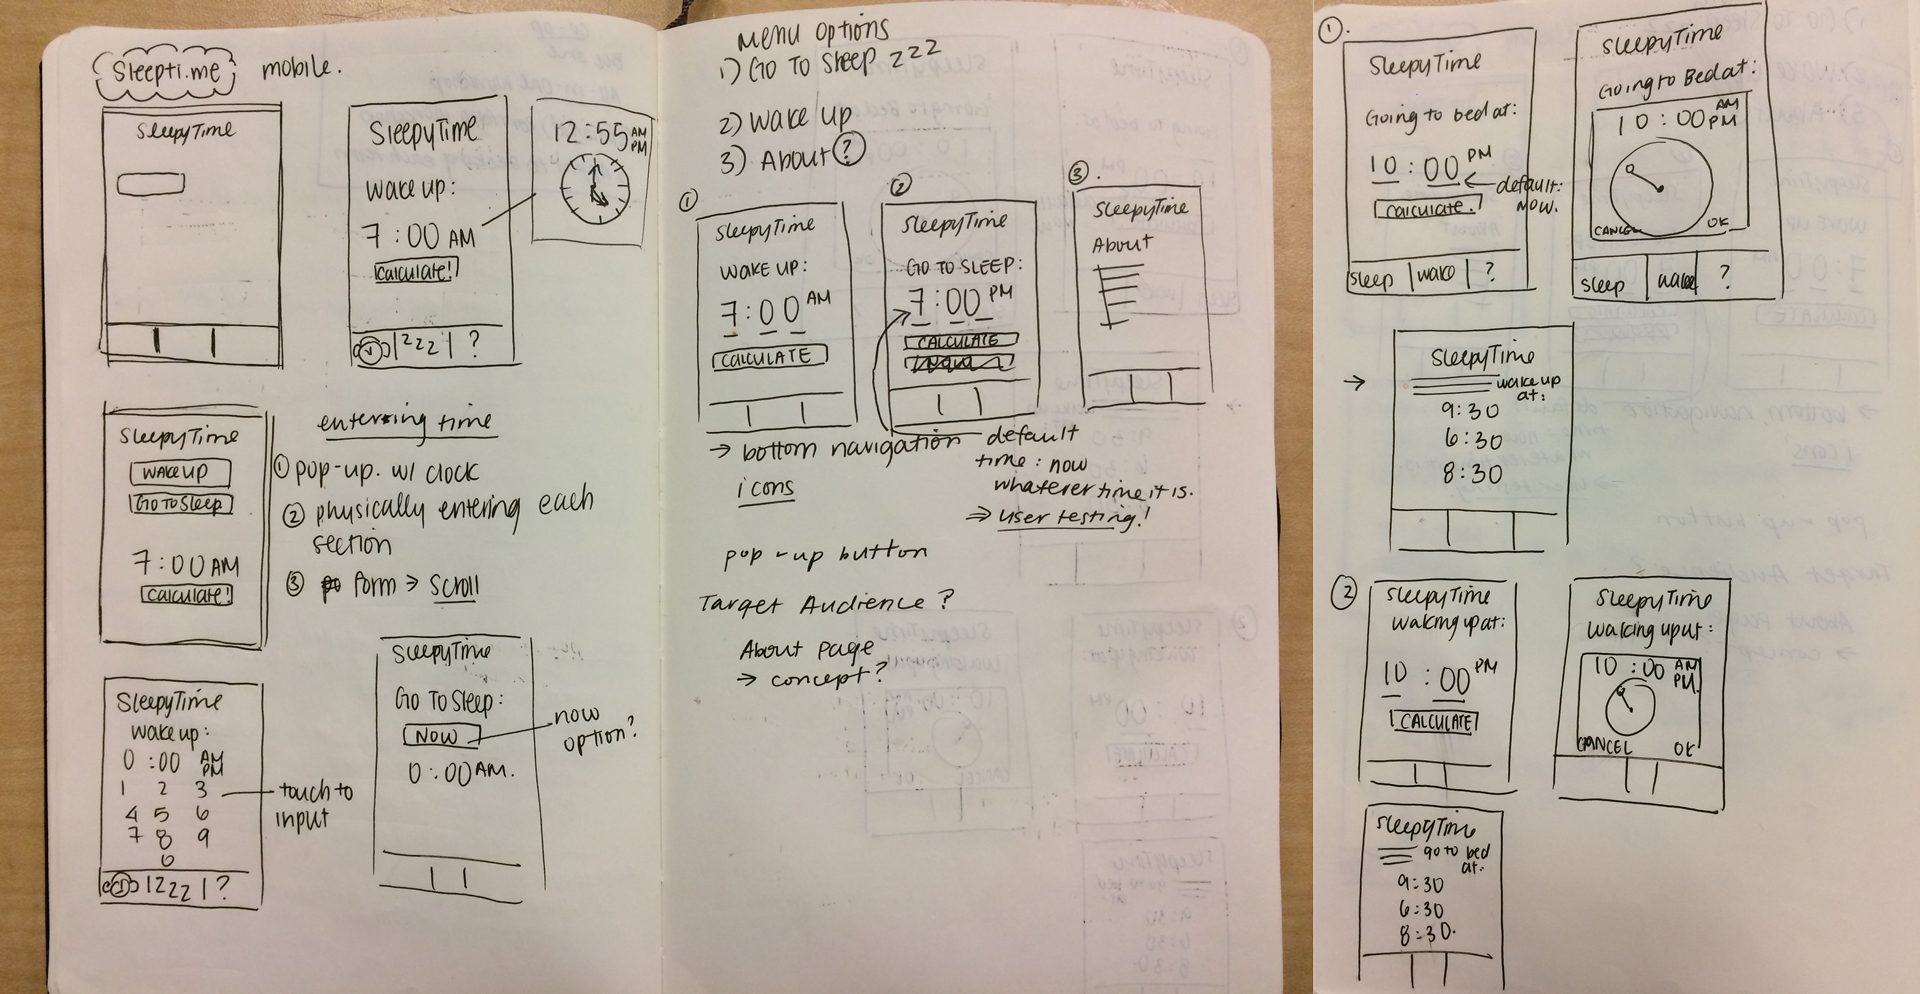 Sleepti.me mobile.
SleepyTime
SleepyTime
wake up:
7:00 AM
calculate!
zzz ?
12:55 AM
PM
SleepyTime
WAKE UP
GO TO Sleep
7:00 AM
calculate!
entering time
① pop-up. w/ clock
② physically entering each
section
③ form → scroll
SleepyTime
wake up:
0:00 AM
PM
1 2 3
4 5 6
7 8 9
0
zzz ?
touch to
input
SleepyTime
Go To Sleep:
NOW
0:00 AM.
now
option?
Menu Options
1) GO TO Sleep zzz
2) Wake up
3) About ?
①
SleepyTime
WAKE UP:
7:00 AM
CALCULATE
②
SleepyTime
GO TO SLEEP:
7:00 PM
CALCULATE
③.
SleepyTime
About
→ bottom navigation
icons
default
time: now
whatever time it is.
⇒ user testing!
pop-up button
Target Audience?
About page
→ concept?
①.
SleepyTime
Going to bed at:
10:00 PM
default:
NOW.
calculate.
sleep wake ?
SleepyTime
Going to Bed at:
10:00 AM
PM
CANCEL OK
sleep wake ?
→
SleepyTime
wake up
at:
9:30
6:30
8:30
②
SleepyTime
waking up at:
10:00 PM
CALCULATE
SleepyTime
waking up at:
10:00 AM
PM.
CANCEL OK
SleepyTime
go to bed
at:
9:30
6:30
8:30.